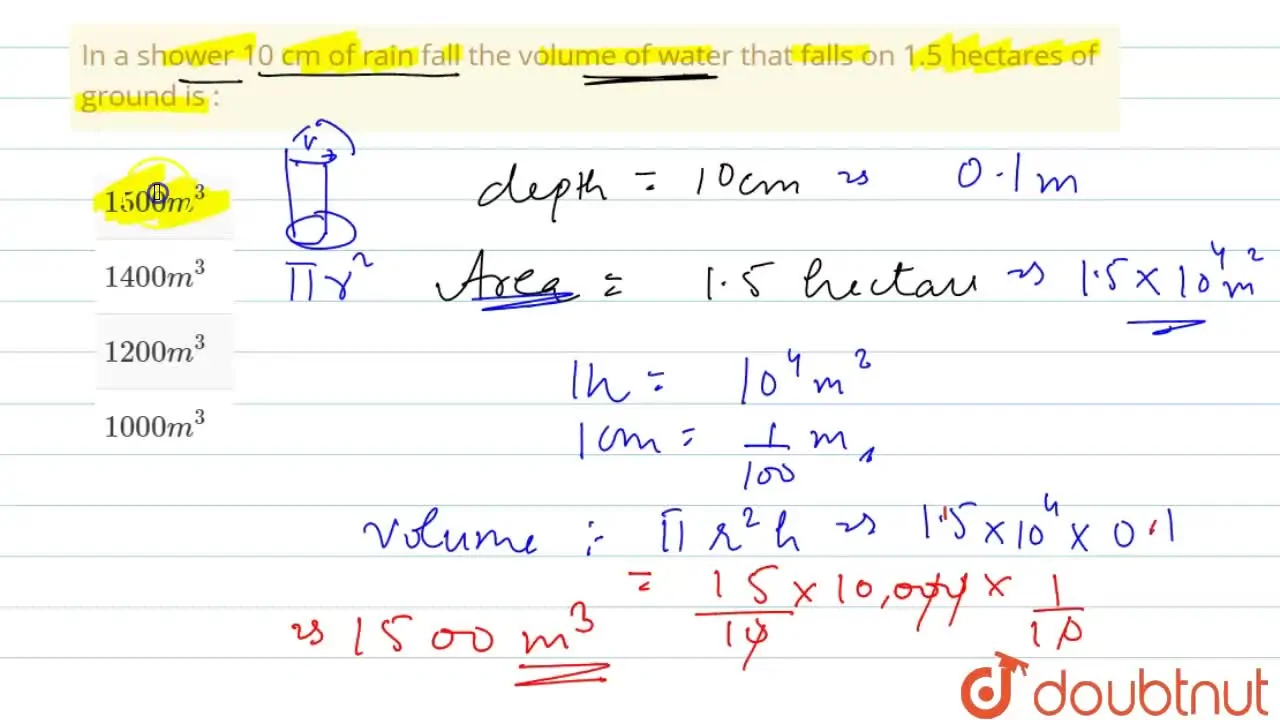 In a shower 10 cm of rain fall the volume of water that falls on 1.5 hectares of
ground is :
1500m³
r
depth = 10cm ⇒ 0.1m
1400m³
πr²
Area = 1.5 hectare ⇒ 1.5 × 10⁴ m²
1200m³
1h = 10⁴ m²
1000m³
1cm = 1/100 m
Volume :- πr²h ⇒ 1.5 × 10⁴ × 0.1
= 15/10 × 10,000 × 1/10
⇒ 1500 m³
doubtnut